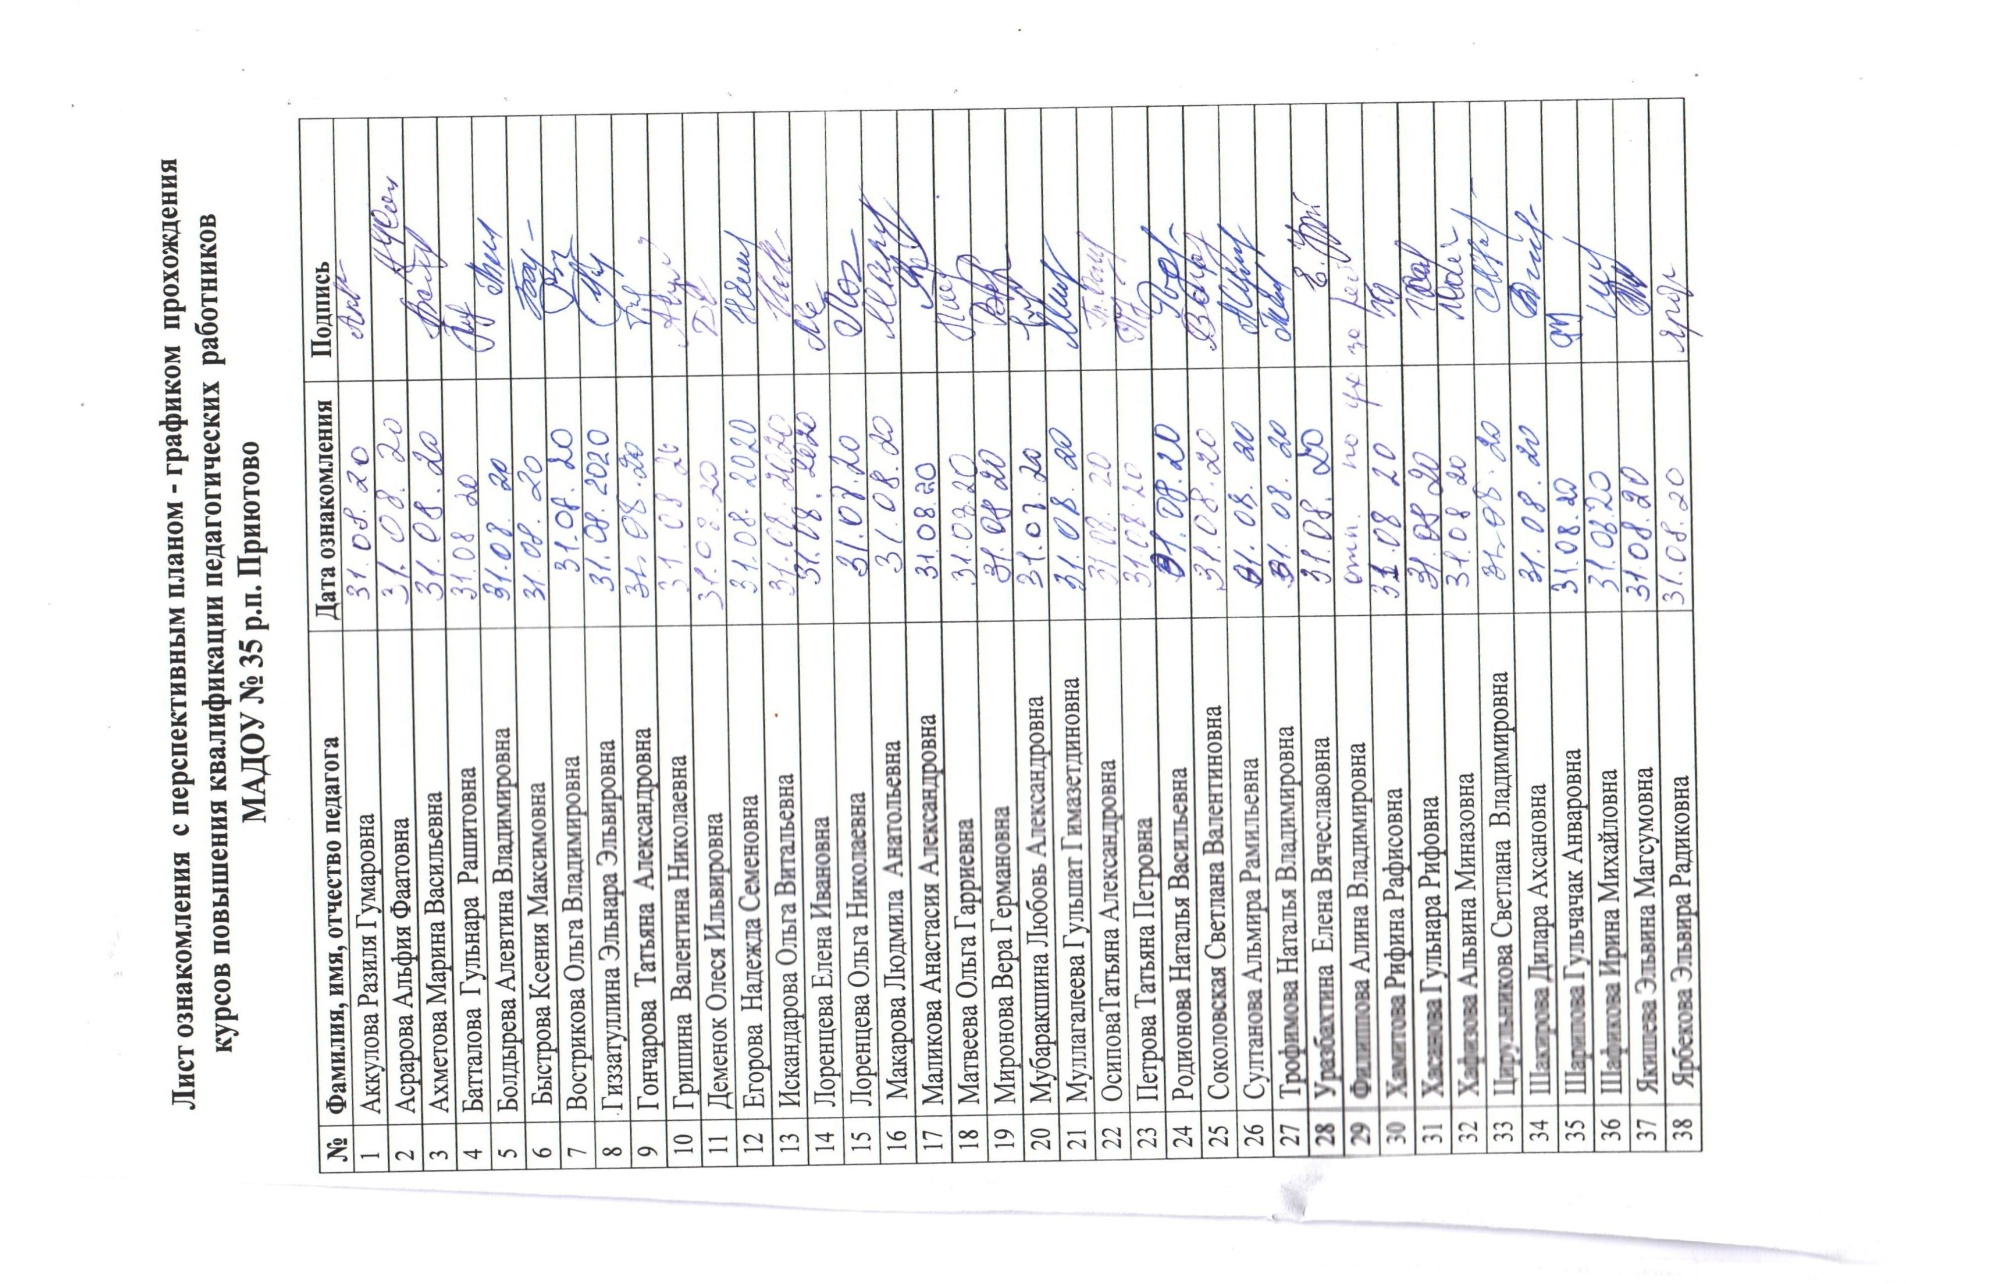 Лист ознакомления с перспективным планом - графиком прохождения
курсов повышения квалификации педагогических работников
МАДОУ № 35 р.п. Приютово
№ Фамилия, имя, отчество педагога Дата ознакомления Подпись
1 Аккулова Разиля Гумаровна 31.08.20
2 Асрарова Альфия Фаатовна 31.08.20
3 Ахметова Марина Васильевна 31.08.20
4 Батталова Гульнара Рашитовна 31.08 20
5 Болдырева Алевтина Владимировна 31.08.20
6 Быстрова Ксения Максимовна 31.08.20
7 Вострикова Ольга Владимировна 31.08.20
8 Гиззатуллина Эльнара Эльвировна 31.08.2020
9 Гончарова Татьяна Александровна 31.08.20
10 Гришина Валентина Николаевна 31.08 20
11 Деменок Олеся Ильвировна 31.08.20
12 Егорова Надежда Семеновна 31.08.2020
13 Искандарова Ольга Витальевна 31.08.2020
14 Лоренцева Елена Ивановна 31.08.2020
15 Лоренцева Ольга Николаевна 31.08.20
16 Макарова Людмила Анатольевна 31.08.20
17 Маликова Анастасия Александровна 31.08.20
18 Матвеева Ольга Гарриевна 31.08.20
19 Миронова Вера Германовна 31.08.20
20 Мубаракшина Любовь Александровна 31.08.20
21 Муллагалеева Гульшат Гимазетдиновна 31.08.20
22 Осипова Татьяна Александровна 31.08.20
23 Петрова Татьяна Петровна 31.08.20
24 Родионова Наталья Васильевна 31.08.20
25 Соколовская Светлана Валентиновна 31.08.20
26 Султанова Альмира Рамильевна 31.08.20
27 Трофимова Наталья Владимировна 31.08.20
28 Уразбахтина Елена Вячеславовна 31.08.20
29 Филиппова Алина Владимировна отп. по ух за
30 Хамитова Рифина Рафисовна 31.08 20
31 Хасанова Гульнара Рифовна 31.08 20
32 Хафизова Альвина Миназовна 31.08 20
33 Цирульникова Светлана Владимировна 31.08.20
34 Шакирова Дилара Ахсановна 31.08.20
35 Шарипова Гульчачак Анваровна 31.08.20
36 Шафикова Ирина Михайловна 31.08.20
37 Якишева Эльвина Магсумовна 31.08.20
38 Ярбекова Эльвира Радиковна 31.08.20